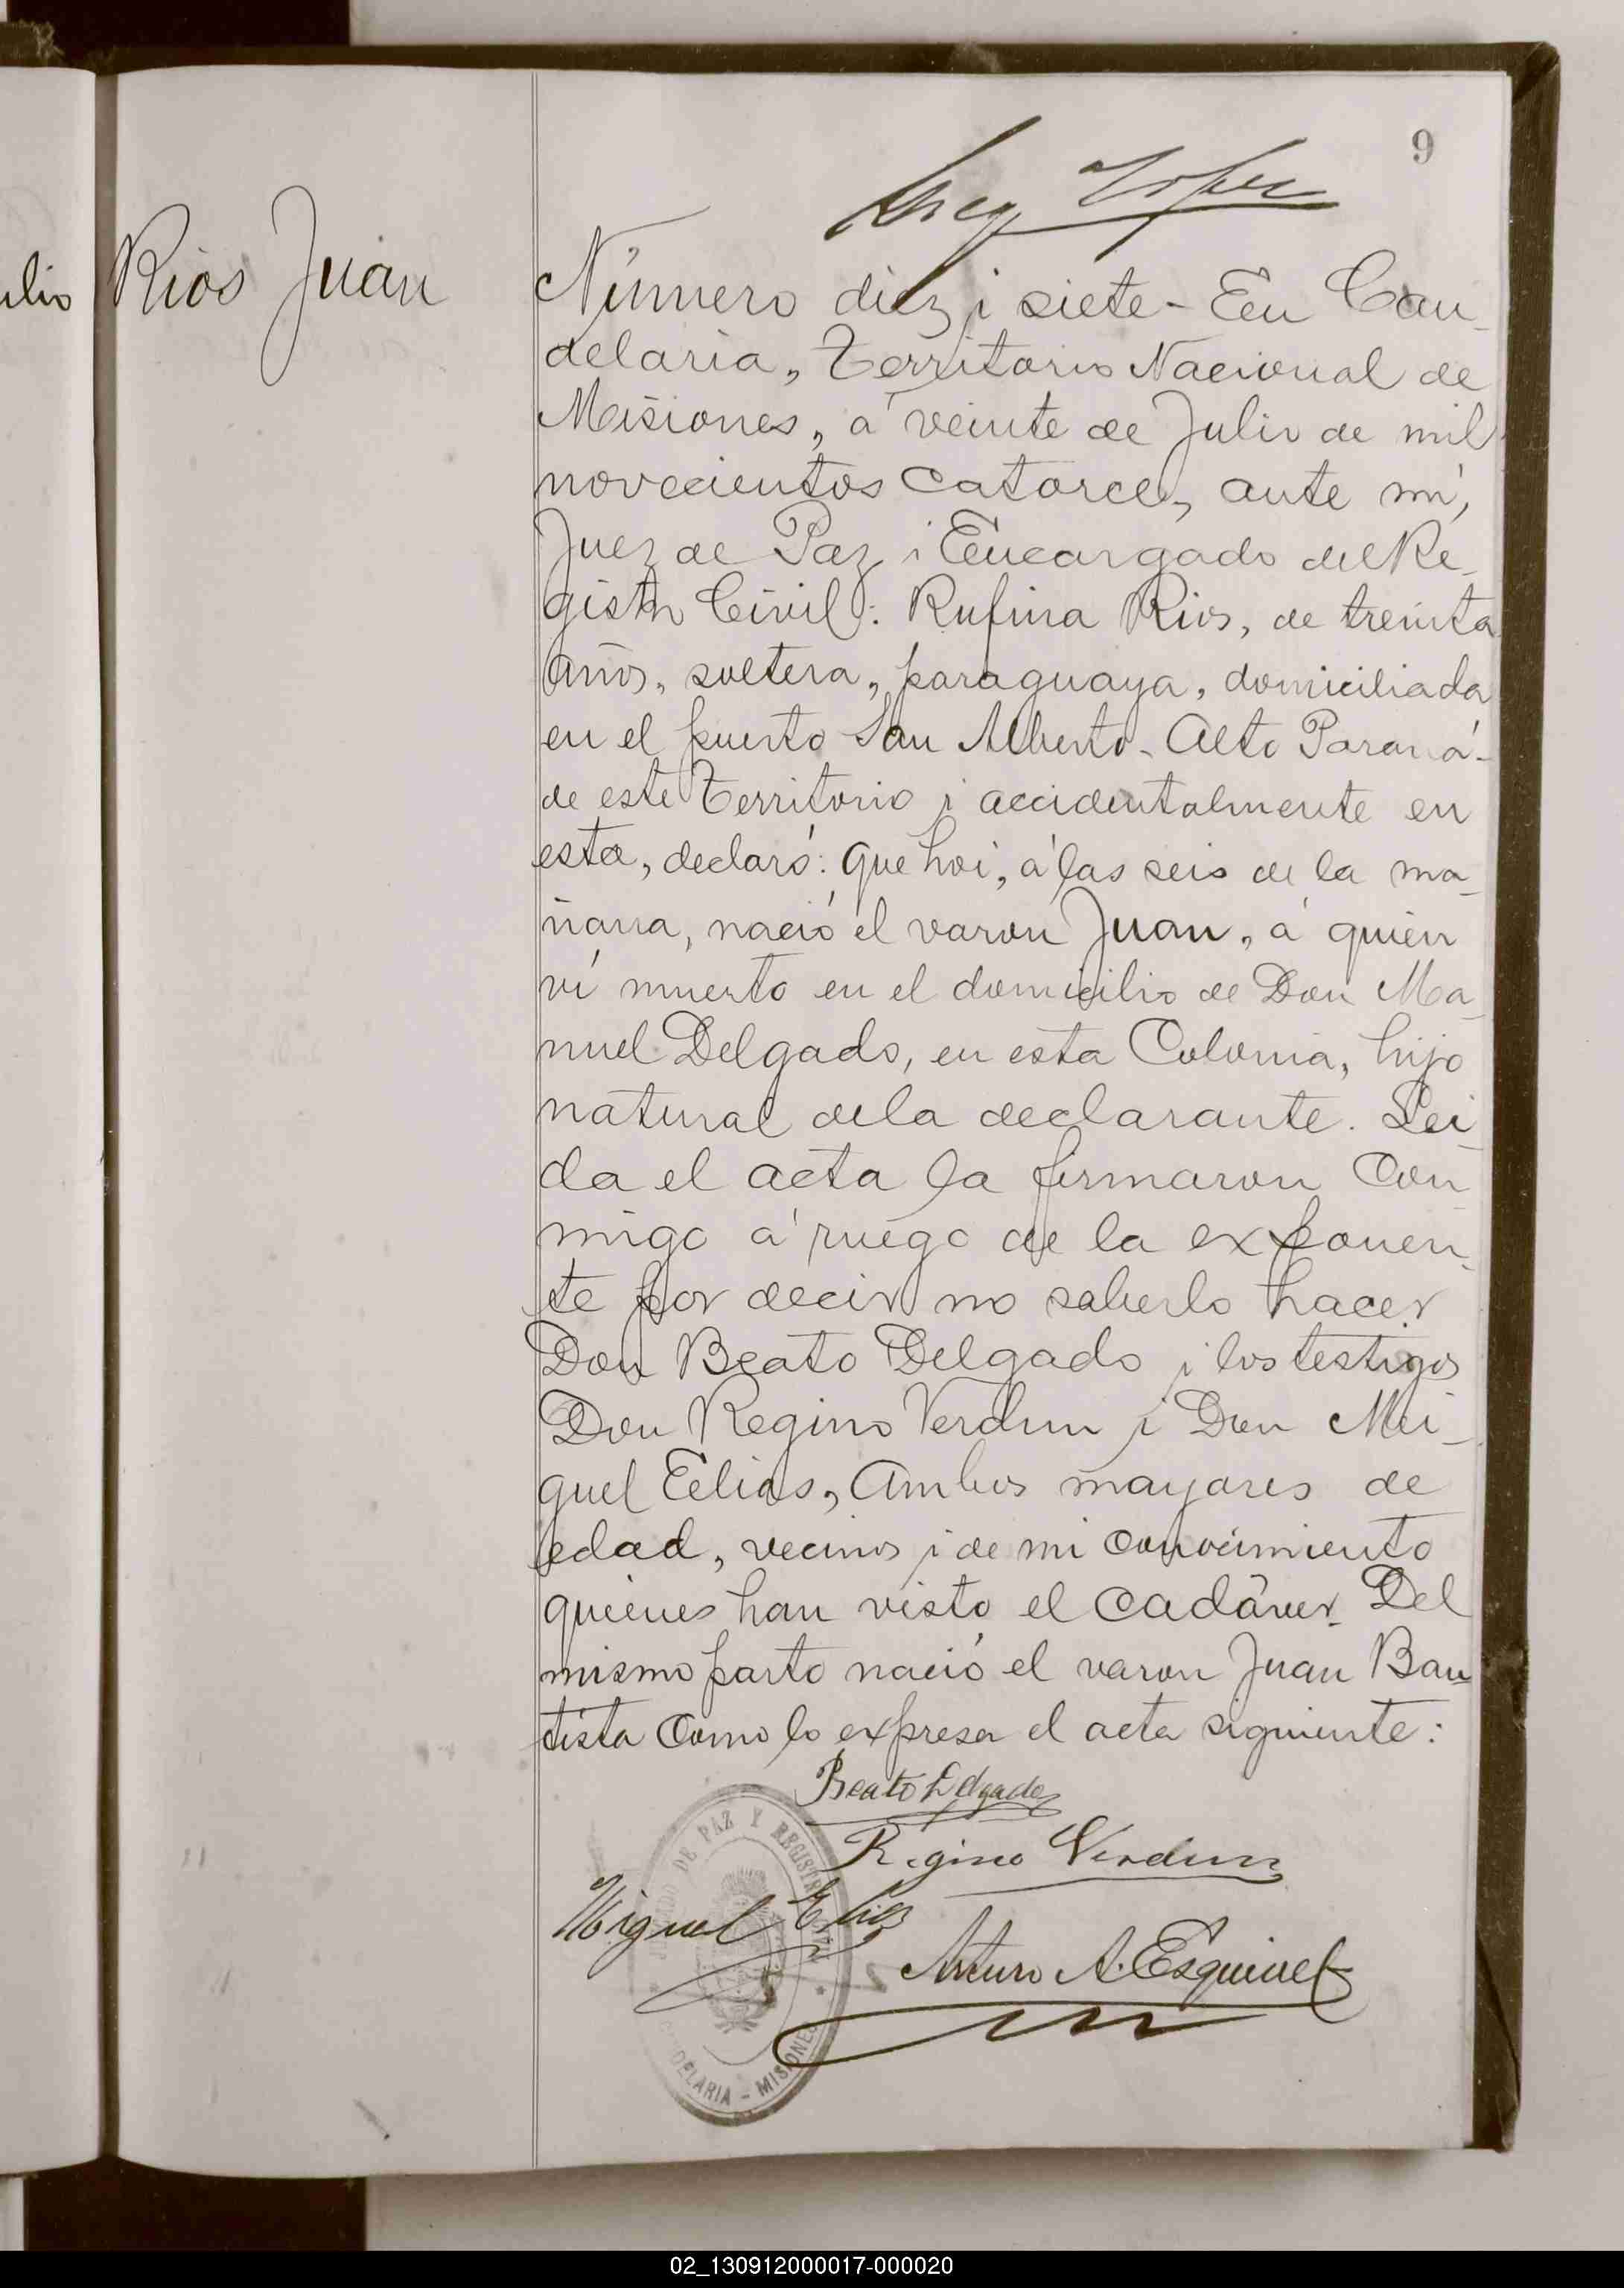 9
Rios Juan
Número diez i siete - En Can-
delaria, Territorio Nacional de
Misiones, á veinte de Julio de mil
novecientos catorce, ante mí,
Juez de Paz i Encargado del Re-
gistro Civil: Rufina Rios, de treinta
años, soltera, paraguaya, domiciliada
en el puerto San Alberto - Alto Paraná -
de este Territorio i accidentalmente en
esta, declaró: que hoi, á las seis de la ma-
ñana, nació el varon Juan, á quien
ví muerto en el domicilio de Don Ma-
nuel Delgado, en esta Colonia, hijo
natural de la declarante. Lei-
da el acta la firmaron con
migo á ruego de la exponen-
te por decir no saberlo hacer
Don Beato Delgado i los testigos
Don Regino Verdun i Don Mi-
guel Elias, ambos mayores de
edad, vecinos i de mi conocimiento
quienes han visto el cadáver. Del
mismo parto nació el varon Juan Bau-
tista como lo expresa el acta siguiente:
Beato Delgado
Regino Verdun
Miguel Elias
Arturo A. Esquivel
DE PAZ Y REGISTRO
DELARIA - MISIONES
02_130912000017-000020